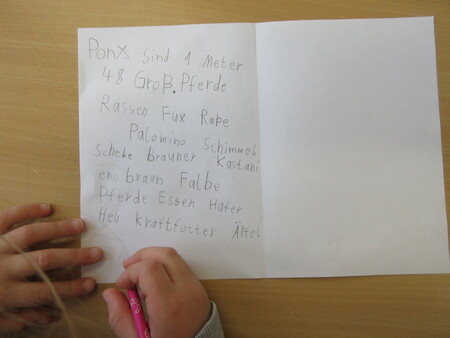 Ponys sind 1 Meter
48 Groß. Pferde
Rassen Fux Rape
Palomino Schimmel
Scheke brauner Kastani
en braun Falbe
Pferde Essen Hafer
Heu kraftfutter Äpfel